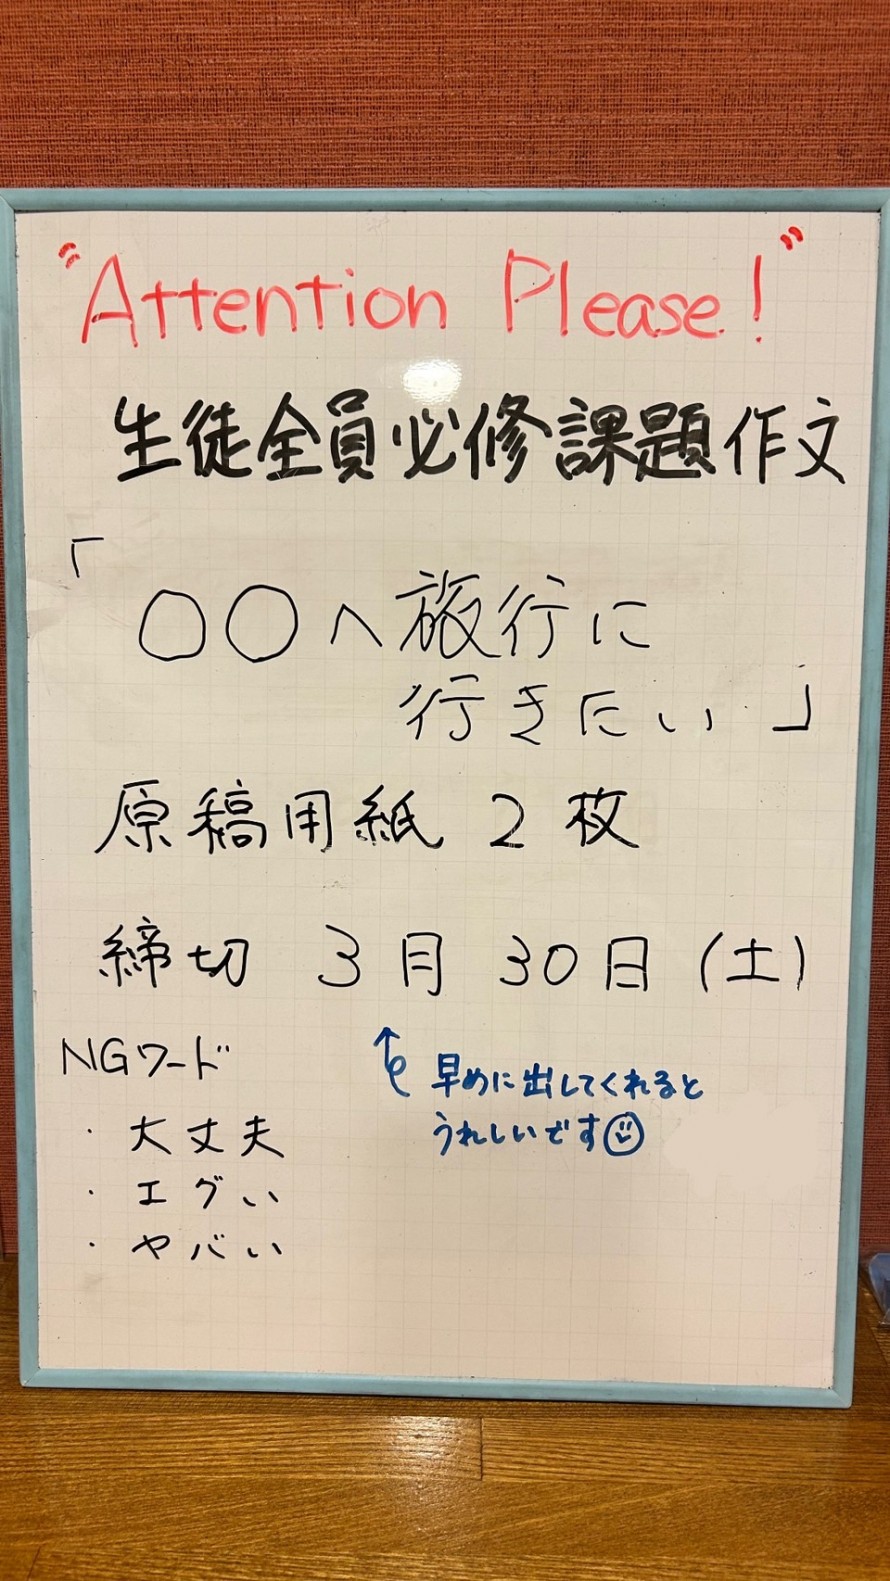 "Attention Please!"
生徒全員必修課題作文
「〇〇へ旅行に
行きたい」
原稿用紙 2枚
締切 3月 30日 (土)
NGワード
↑ 早めに出してくれると
うれしいです☺
・大丈夫
・エグい
・ヤバい